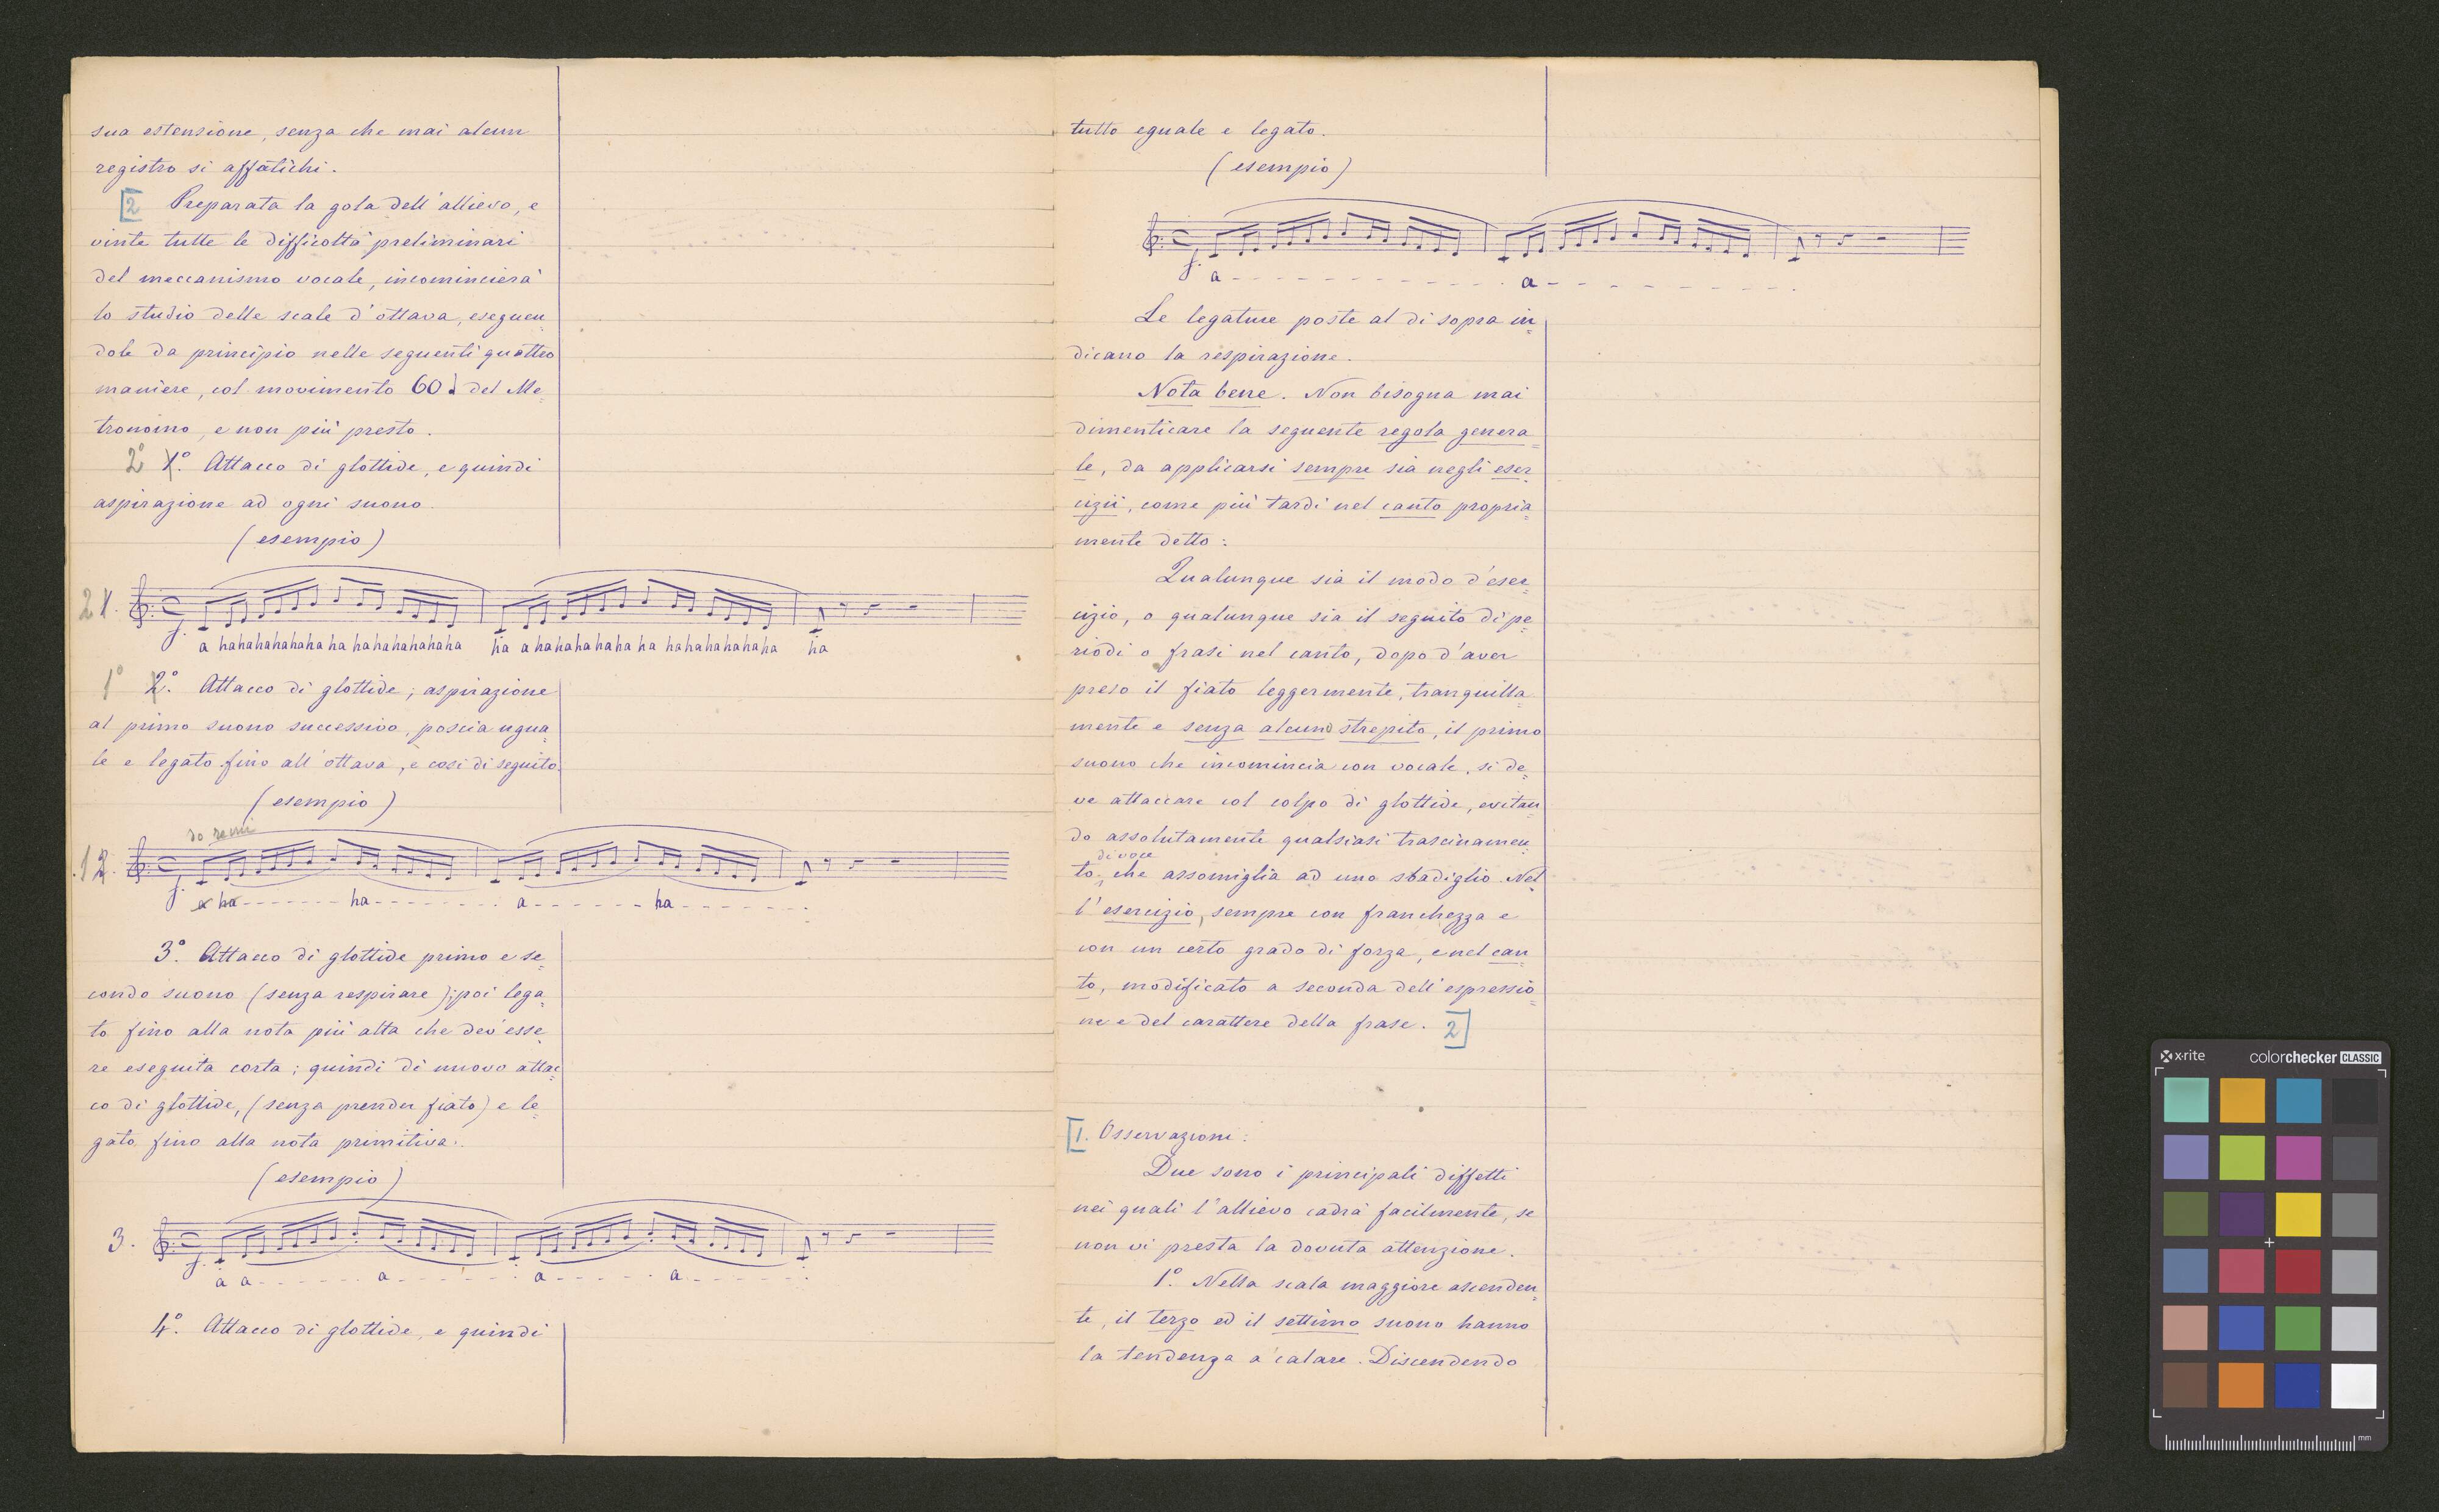 sua estensione, senza che mai alcun
registro si affatichi.
[2 Preparata la gola dell'allievo, e
vinte tutte le difficoltà preliminari
del meccanismo vocale, incomincierà
lo studio delle scale d'ottava, eseguen=
dole da principio nelle seguenti quattro
maniere, col movimento 60 ♩ del Me=
tronomo, e non più presto.
2° 1°. Attacco di glottide, e quindi
aspirazione ad ogni suono.
(esempio)
2 1.
f. a hahahahahaha ha hahahahahaha ha a hahahahaha ha hahahahahaha ha
1° 2°. Attacco di glottide; aspirazione
al primo suono successivo, poscia ugua=
le e legato fino all'ottava, e così di seguito.
(esempio)
do re mi
1 2.
f. a ha - - - - - - - ha - - - - - - - a - - - - - - - ha - - - - - - -
3°. Attacco di glottide primo e se=
condo suono (senza respirare); poi lega=
to fino alla nota più alta che dev'esse=
re eseguita corta; quindi di nuovo attac=
co di glottide, (senza prender fiato) e le=
gato fino alla nota primitiva.
(esempio)
3.
f. a a - - - - - - a - - - - - - a - - - - - a - - - - - -
4°. Attacco di glottide, e quindi
tutto eguale e legato.
(esempio)
f. a - - - - - - - - - - - - - a - - - - - - - - - -
Le legature poste al di sopra in=
dicano la respirazione.
Nota bene. Non bisogna mai
dimenticare la seguente regola genera=
le, da applicarsi sempre sia negli eser=
cizii, come più tardi nel canto propria=
mente detto:
Qualunque sia il modo d'eser=
cizio, o qualunque sia il seguito di pe=
riodi o frasi nel canto, dopo d'aver
preso il fiato leggermente, tranquilla=
mente e senza alcuno strepito, il primo
suono che incomincia con vocale, si de=
ve attaccare col colpo di glottide, evitan=
do assolutamente qualsiasi trascinamen=
di voce
to, che assomiglia ad uno sbadiglio. Nel=
l'esercizio, sempre con franchezza e
con un certo grado di forza, e nel can=
to, modificato a seconda dell'espressio=
ne e del carattere della frase. 2]
[1. Osservazioni:
Due sono i principali diffetti
nei quali l'allievo cadrà facilmente, se
non vi presta la dovuta attenzione.
1°. Nella scala maggiore ascenden=
te, il terzo ed il settimo suono hanno
la tendenza a calare. Discendendo
x-rite colorchecker CLASSIC
mm